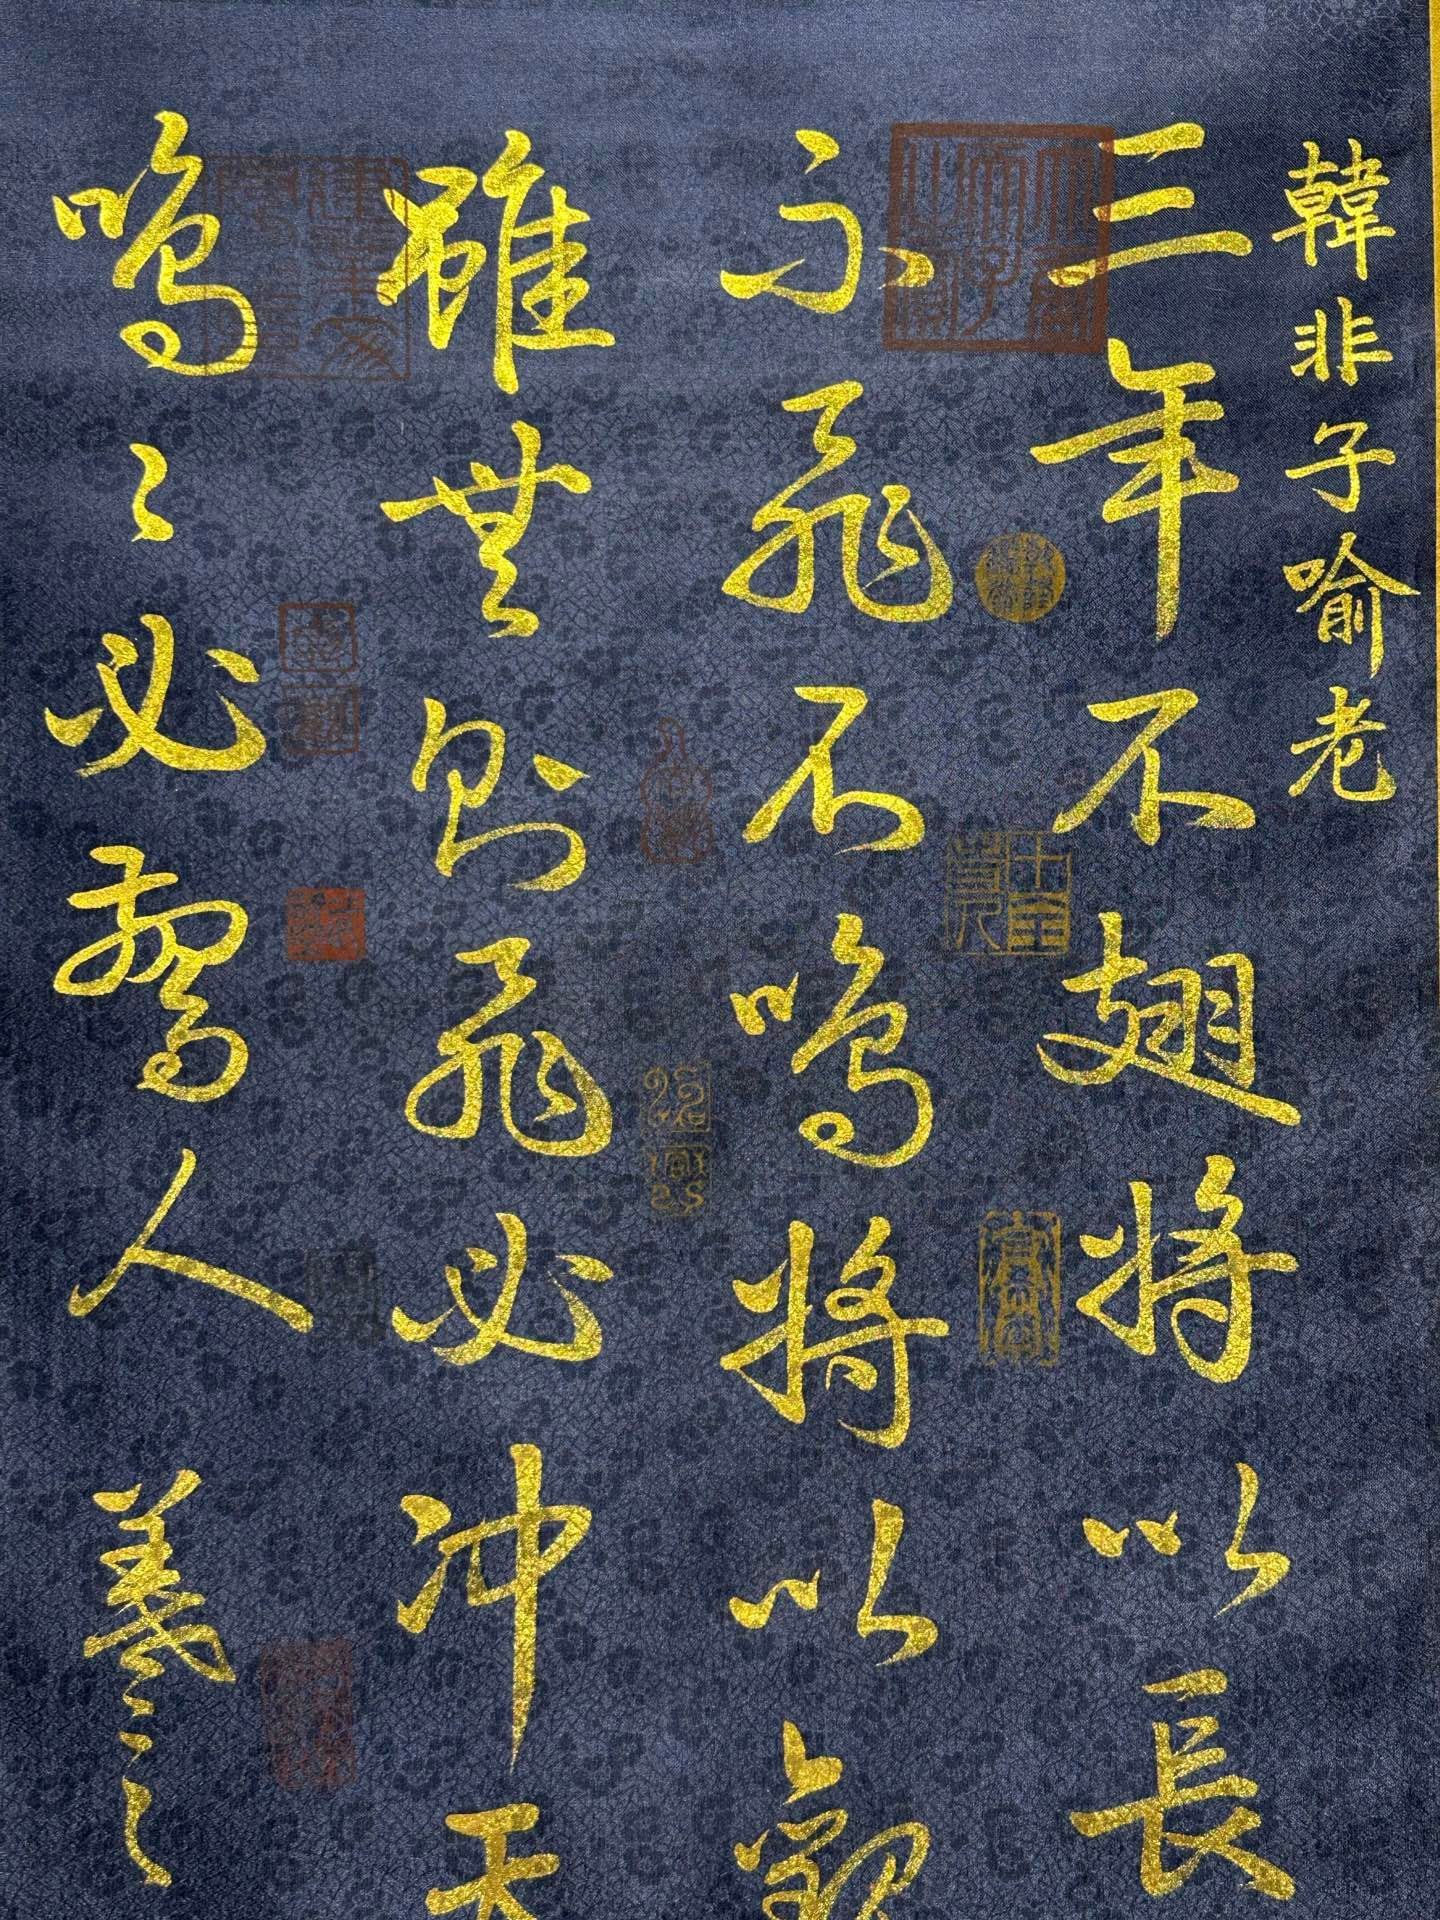 韓非子喻老
三年不翅將以長
不飛不鳴將以觀
雖無飛則飛必冲天
鳴〻必驚人 羲之